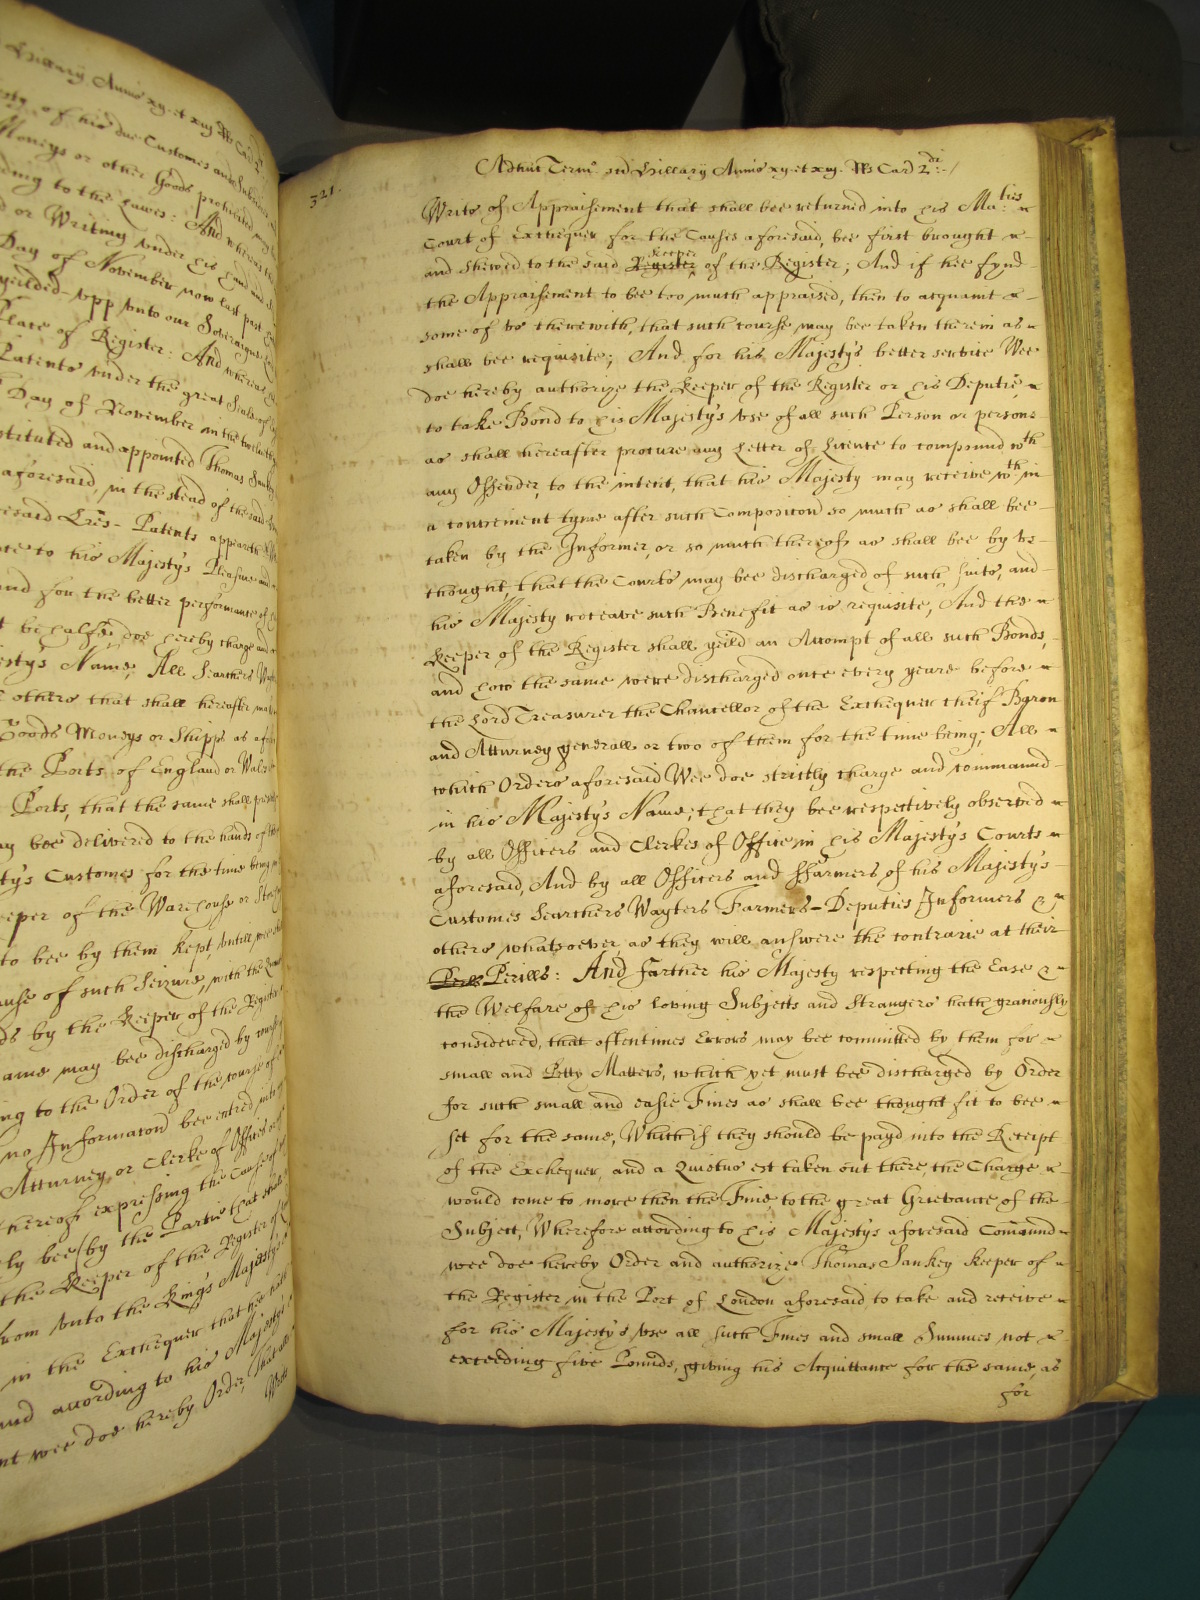 Hillary Anno xv et xvi Rs Car 2
of his due Customes and Subsidies
Moneys or other Goods prohibited
to the Lawes: And whereas
or Writing under his hand and
Day of November now last past
yeilded upp unto our Soveraigne
Place of Register: And whereas
Patents under the great Seale of
Day of November in the twelueth
stituted and appointed Thomas Sankey
aforesaid, in the stead of the said
esaid Lres-Patents appeareth
to his Majestys Pleasure and
and for the better performance of
behalfe, doe hereby charge and
estys Name, All Searchers
others that shall hereafter make
Goods Moneys or Shipps as afore
the Ports of England or Wales
Ports, that the same shall
bee delivered to the hands of
tys Customes for the time being
eeper of the Warehouse or
to bee by them kept, untill
ause of such Seizure, with the
ds by the Keeper of the Register
ame may bee discharged by
ng to the Order of the course of
no Informacon bee entred into
Attorney or Clerke of Office
thereof expressing the Cause of
ly bee by the Partie that
the Keeper of the Register
from unto the Kings Majestys
in the Exchequer that
and according to his Majestys
wee doe hereby Order, That all
Writs
321.
Adhuc Term sci Hillary Annis xv et xvi Rs Car 2di
Writs of Appraisement that shall bee returned into his Maties
Court of Exchequer for the Causes aforesaid, bee first brought
and shewed to the said Register Keeper of the Register; And if hee fynd
the Appraisement to bee too much appraised, then to acquaint
some of us therewith, that such course may bee taken therein as
shall bee requisite; And for his Majestys better service Wee
doe hereby authorize the Keeper of the Register or his Deputie
to take Bond to his Majestys use of all such Person or persons
as shall hereafter procure any Letter of Licence to compound wth
any Offender, to the intent, that his Majesty may receive wth in
a convenient tyme after such Composicon so much as shall bee
taken by the Informer, or so much thereof as shall bee by us
thought, that the Courts may bee discharged of such suits, and
his Majesty receave such Benefit as is requisite, And the
Keeper of the Register shall yeild an Accompt of all such Bonds,
and how the same were discharged once every yeare before
the Lord Treasurer the Chancellor of the Exchequer cheif Baron
and Atturney generall or two of them for the time being; All
which Orders aforesaid Wee doe strictly charge and command
in his Majesty's Name; that they bee respectively observed
by all Officers and Clerkes of Office in his Majesty's Courts
aforesaid, And by all Officers and ffarmers of his Majesty's
Customes Searchers Wayters Farmers-Deputies Informers &
others whatsoever as they will answere the contrarie at their
Perills: And farther his Majesty respecting the Ease &
the Welfare of his loving Subjects and Strangers hath graciously
considered, that oftentimes Errors may bee committed by them for
small and Petty Matters, which yet must bee discharged by Order
for such small and easie Fines as shall bee thought fit to bee
set for the same, Which if they should be payd into the Receipt
of the Exchequer, and a Quietus est taken out there the Charge
would come to more then the Fine, to the great Grievance of the
Subject, Wherefore according to his Majestys aforesaid Comaund
wee doe hereby Order and authorize Thomas Sankey Keeper of
the Register in the Port of London aforesaid to take and receive
for his Majesty's use all such Fines and small Summes not
exceeding five Pounds, giving his Acquittance for the same, as
for